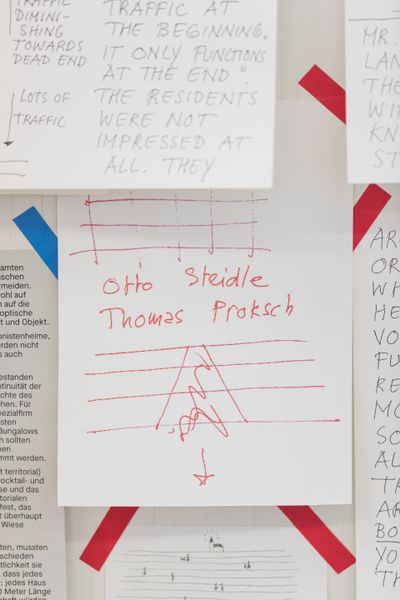 TRAFFIC
DIMINI-
SHING
TOWARDS
DEAD END
LOTS OF
TRAFFIC
TRAFFIC AT
THE BEGINNING,
IT ONLY FUNCTIONS
AT THE END".
THE RESIDENTS
WERE NOT
IMPRESSED AT
ALL. THEY
MR.
LAN
THE
WIT
KN
ST
Otto Steidle
Thomas Proksch
amten
ischen
rmeiden.
wohl auf
n auf die
optische
t und Objekt.
onistenheime,
erden nicht
s auch
estanden
ntinuität der
chte des
hen. Für
pezialfirm
sten
Bungalows
n sollten
nen
mmt werden.
t territorial)
ocktail- und
se und das
itorialen
fest, das
t überhaupt
Wiese
ten, mussten
schieden
tlichkeit sie
, dass jedes
: jedes Haus
0 Meter Länge
AR
OR
WH
HE
VO
FU
RE
MO
SO
AL
TH
AR
BO
YO
TH